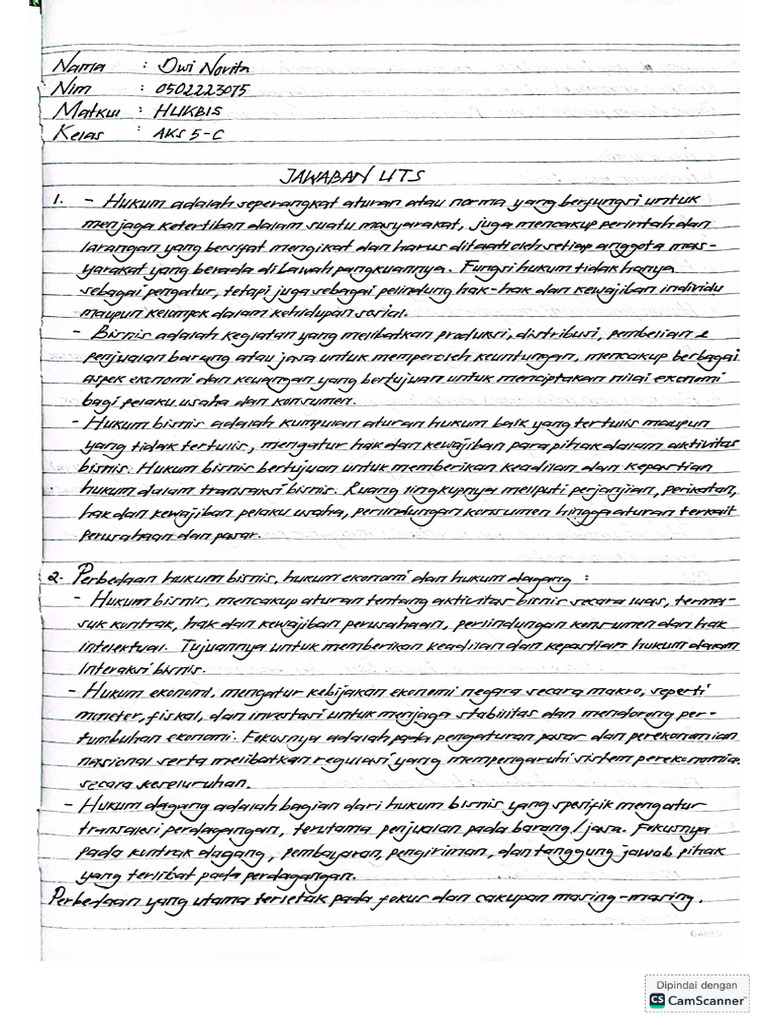 Nama : Dwi Novita
Nim : 0502223075
Matkul : HUKBIS
Kelas : AKS 5-C
JAWABAN UTS
1. - Hukum adalah seperangkat aturan atau norma yang berfungsi untuk
menjaga ketertiban dalam suatu masyarakat, juga mencakup perintah dan
larangan yang bersifat mengikat dan harus ditaati oleh setiap anggota mas-
yarakat yang berada dibawah pangkuannya. Fungsi hukum tidak hanya
sebagai pengatur, tetapi juga sebagai pelindung hak-hak dan kewajiban individu
maupun kelompok dalam kehidupan sosial.
- Bisnis adalah kegiatan yang melibatkan produksi, distribusi, pembelian &
penjualan barang atau jasa untuk memperoleh keuntungan, mencakup berbagai
aspek ekonomi dan keuangan yang bertujuan untuk menciptakan nilai ekonomi
bagi pelaku usaha dan konsumen.
- Hukum bisnis adalah kumpulan aturan hukum baik yang tertulis maupun
yang tidak tertulis, mengatur hak dan kewajiban para pihak dalam aktivitas
bisnis. Hukum bisnis bertujuan untuk memberikan keadilan dan kepastian
hukum dalam transaksi bisnis. Ruang lingkupnya meliputi perjanjian, perikatan,
hak dan kewajiban pelaku usaha, perlindungan konsumen hingga aturan terkait
perusahaan dan pasar.
2. Perbedaan hukum bisnis, hukum ekonomi dan hukum dagang :
- Hukum bisnis, mencakup aturan tentang aktivitas bisnis secara luas, terma-
suk kontrak, hak dan kewajiban perusahaan, perlindungan konsumen dan hak
intelektual. Tujuannya untuk memberikan keadilan dan kepastian hukum dalam
interaksi bisnis.
- Hukum ekonomi, mengatur kebijakan ekonomi negara secara makro, seperti
moneter, fiskal, dan investasi untuk menjaga stabilitas dan mendorong per-
tumbuhan ekonomi. Fokusnya adalah pada pengaturan pasar dan perekonomian
nasional serta melibatkan regulasi yang mempengaruhi sistem perekonomian
secara keseluruhan.
- Hukum dagang adalah bagian dari hukum bisnis yang spesifik mengatur
transaksi perdagangan, terutama penjualan pada barang/jasa. Fokusnya
pada kontrak dagang, pembayaran, pengiriman, dan tanggung jawab pihak
yang terlibat pada perdagangan.
Perbedaan yang utama terletak pada fokus dan cakupan masing-masing.
Dipindai dengan
CS CamScanner